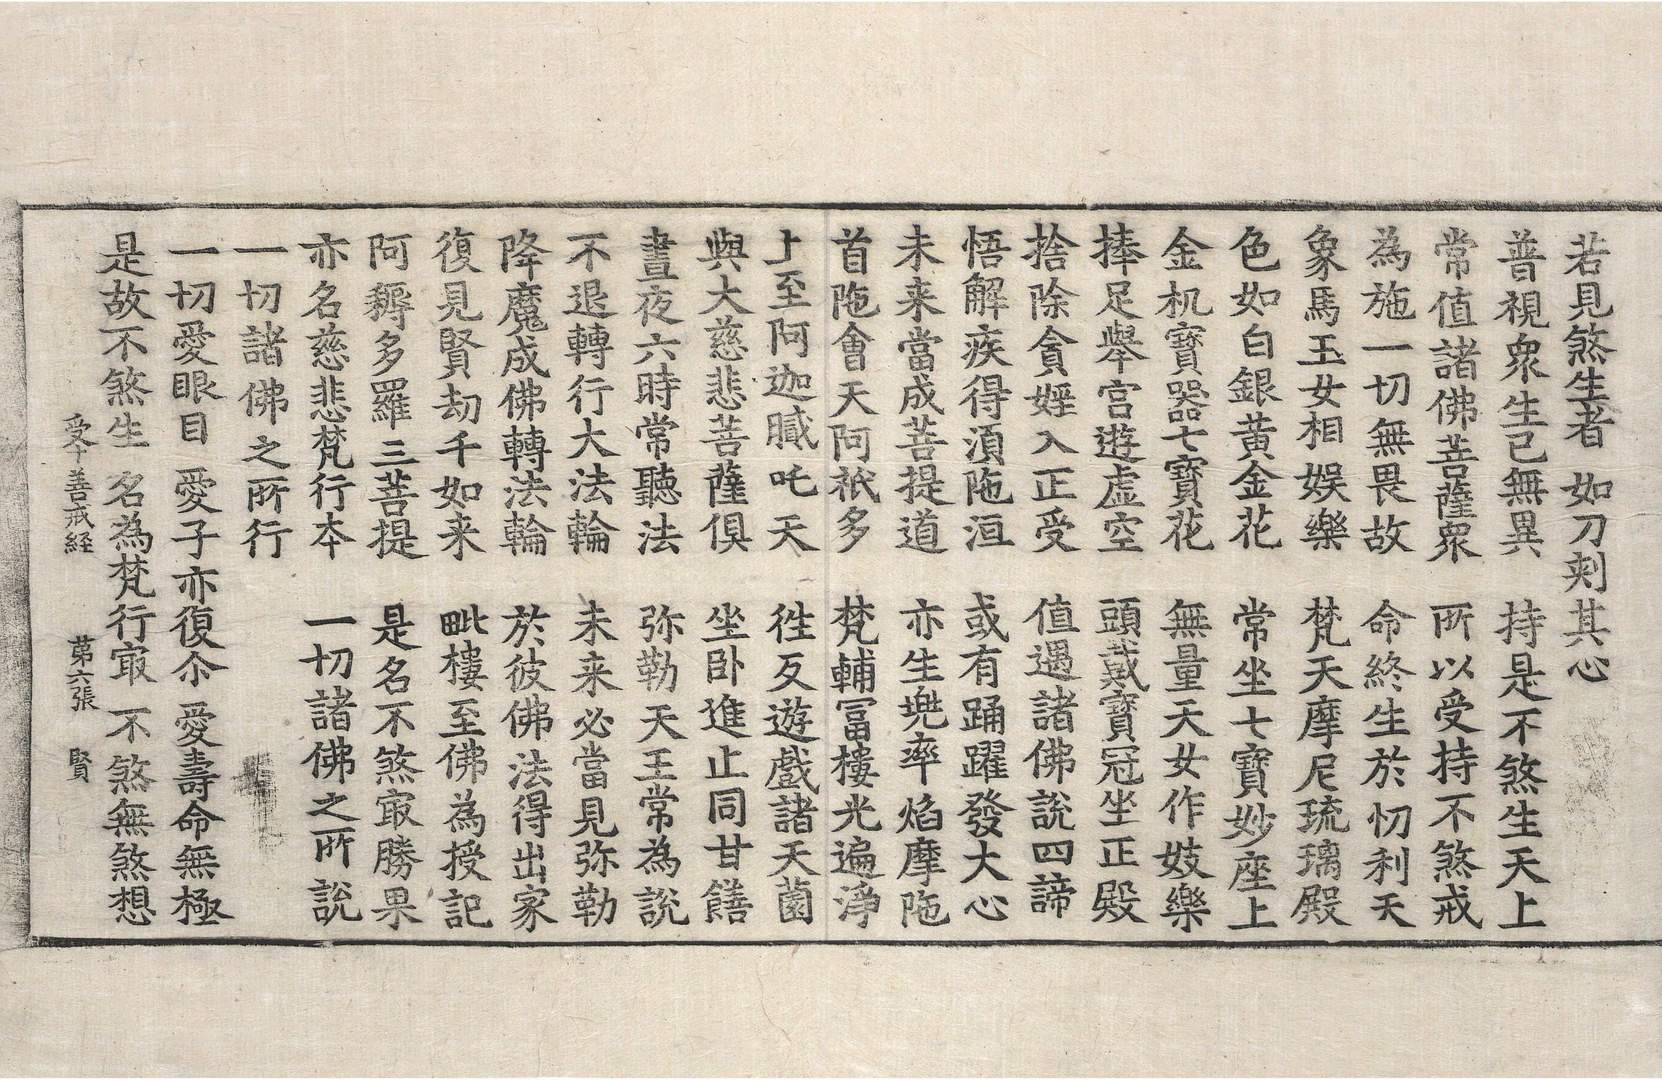 若見煞生者 如刀刾其心
普視衆生已無異 持是不煞生天上
常值諸佛菩薩衆 所以受持不煞戒
為施一切無畏故 命終生於忉利天
象馬玉女相娛樂 梵天摩尼琉璃殿
色如白銀黄金花 常坐七寶妙座上
金机寶器七寶花 無量天女作妓樂
捧足舉宫遊虚空 頭戴寶冠坐正殿
捨除貪婬入正受 值遇諸佛說四諦
悟解疾得湏陁洹 或有踊躍發大心
未来當成菩提道 亦生兠率焰摩陁
首陁會天阿祇多 梵輔冨樓光遍淨
上至阿迦膩吒天 徃反遊戲諸天薗
與大慈悲菩薩俱 坐卧進止同甘饍
晝夜六時常聽法 弥勒天王常為說
不退轉行大法輪 未来必當見弥勒
降魔成佛轉法輪 於彼佛法得出家
復見賢劫千如来 毗樓至佛為授記
阿耨多羅三菩提 是名不煞㝡勝果
亦名慈悲梵行本 一切諸佛之所說
一切諸佛之所行
一切愛眼目 愛子亦復尒 愛壽命無極
是故不煞生 名為梵行㝡 不煞無煞想
受十善戒経 苐六張 賢